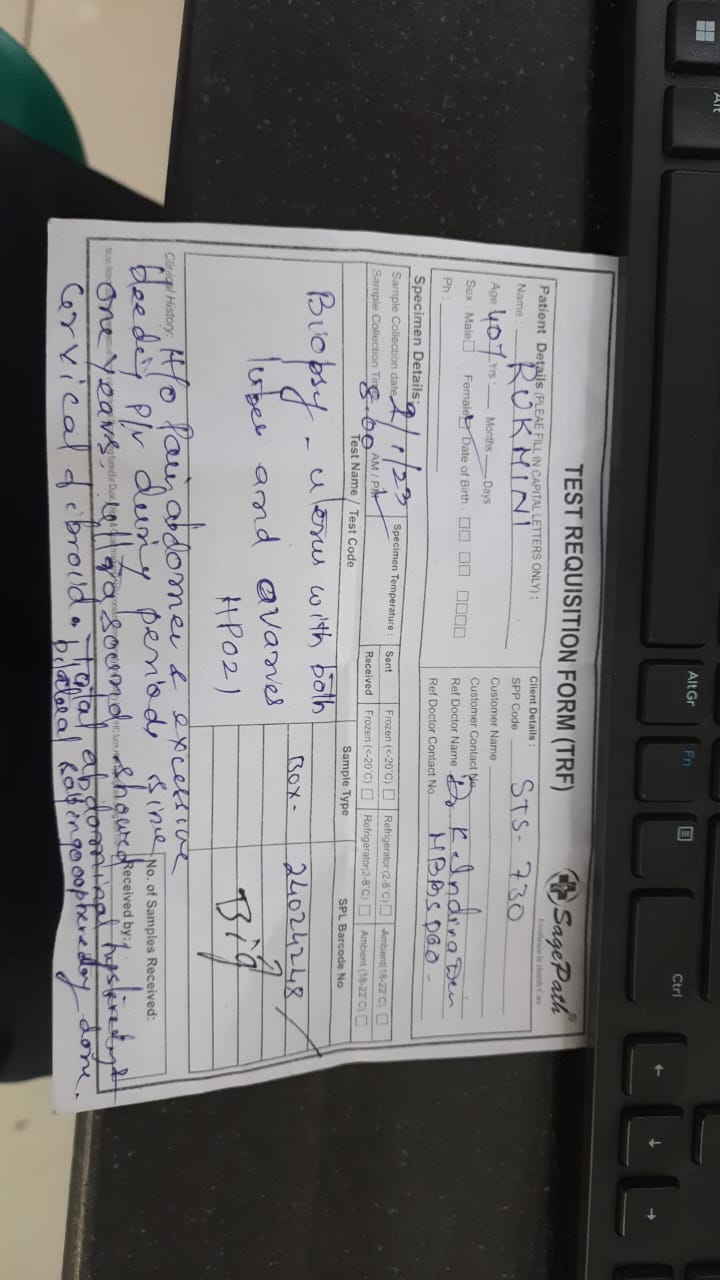 TEST REQUISITION FORM (TRF)
SagePath®
Excellence In Health Care
Patient Details (PLEAE FILL IN CAPITAL LETTERS ONLY) :
Name : RUKMINI
Age 40Y Yrs : Months Days
Sex : Male Female Date of Birth :
Ph :
Client Details :
SPP Code STS-730
Customer Name
Customer Contact No.
Ref Doctor Name Dr K Indira Devi
Ref Doctor Contact No. MBBS DGO.
Specimen Details:
Sample Collection date /1/23 Specimen Temperature : Sent Frozen (<-20°C) Refrigerator (2-8°C) Ambient (18-22°C)
Sample Collection Time 8:00 AM / PM Received Frozen (<-20°C) Refrigerator (2-8°C) Ambient (18-22°C)
Test Name / Test Code Sample Type SPL Barcode No
Biopsy - uterus with both Box- 24024248
tubes and ovaries Big
HP021
Clinical History: H/o Pain abdomen & excessive
bleeding P/v during periods since No. of Samples Received:
one years. ultrasound showed Received by:
Cervical fibroid. Total abdominal hysterectomy
bilateral salpingo oopherectomy done.